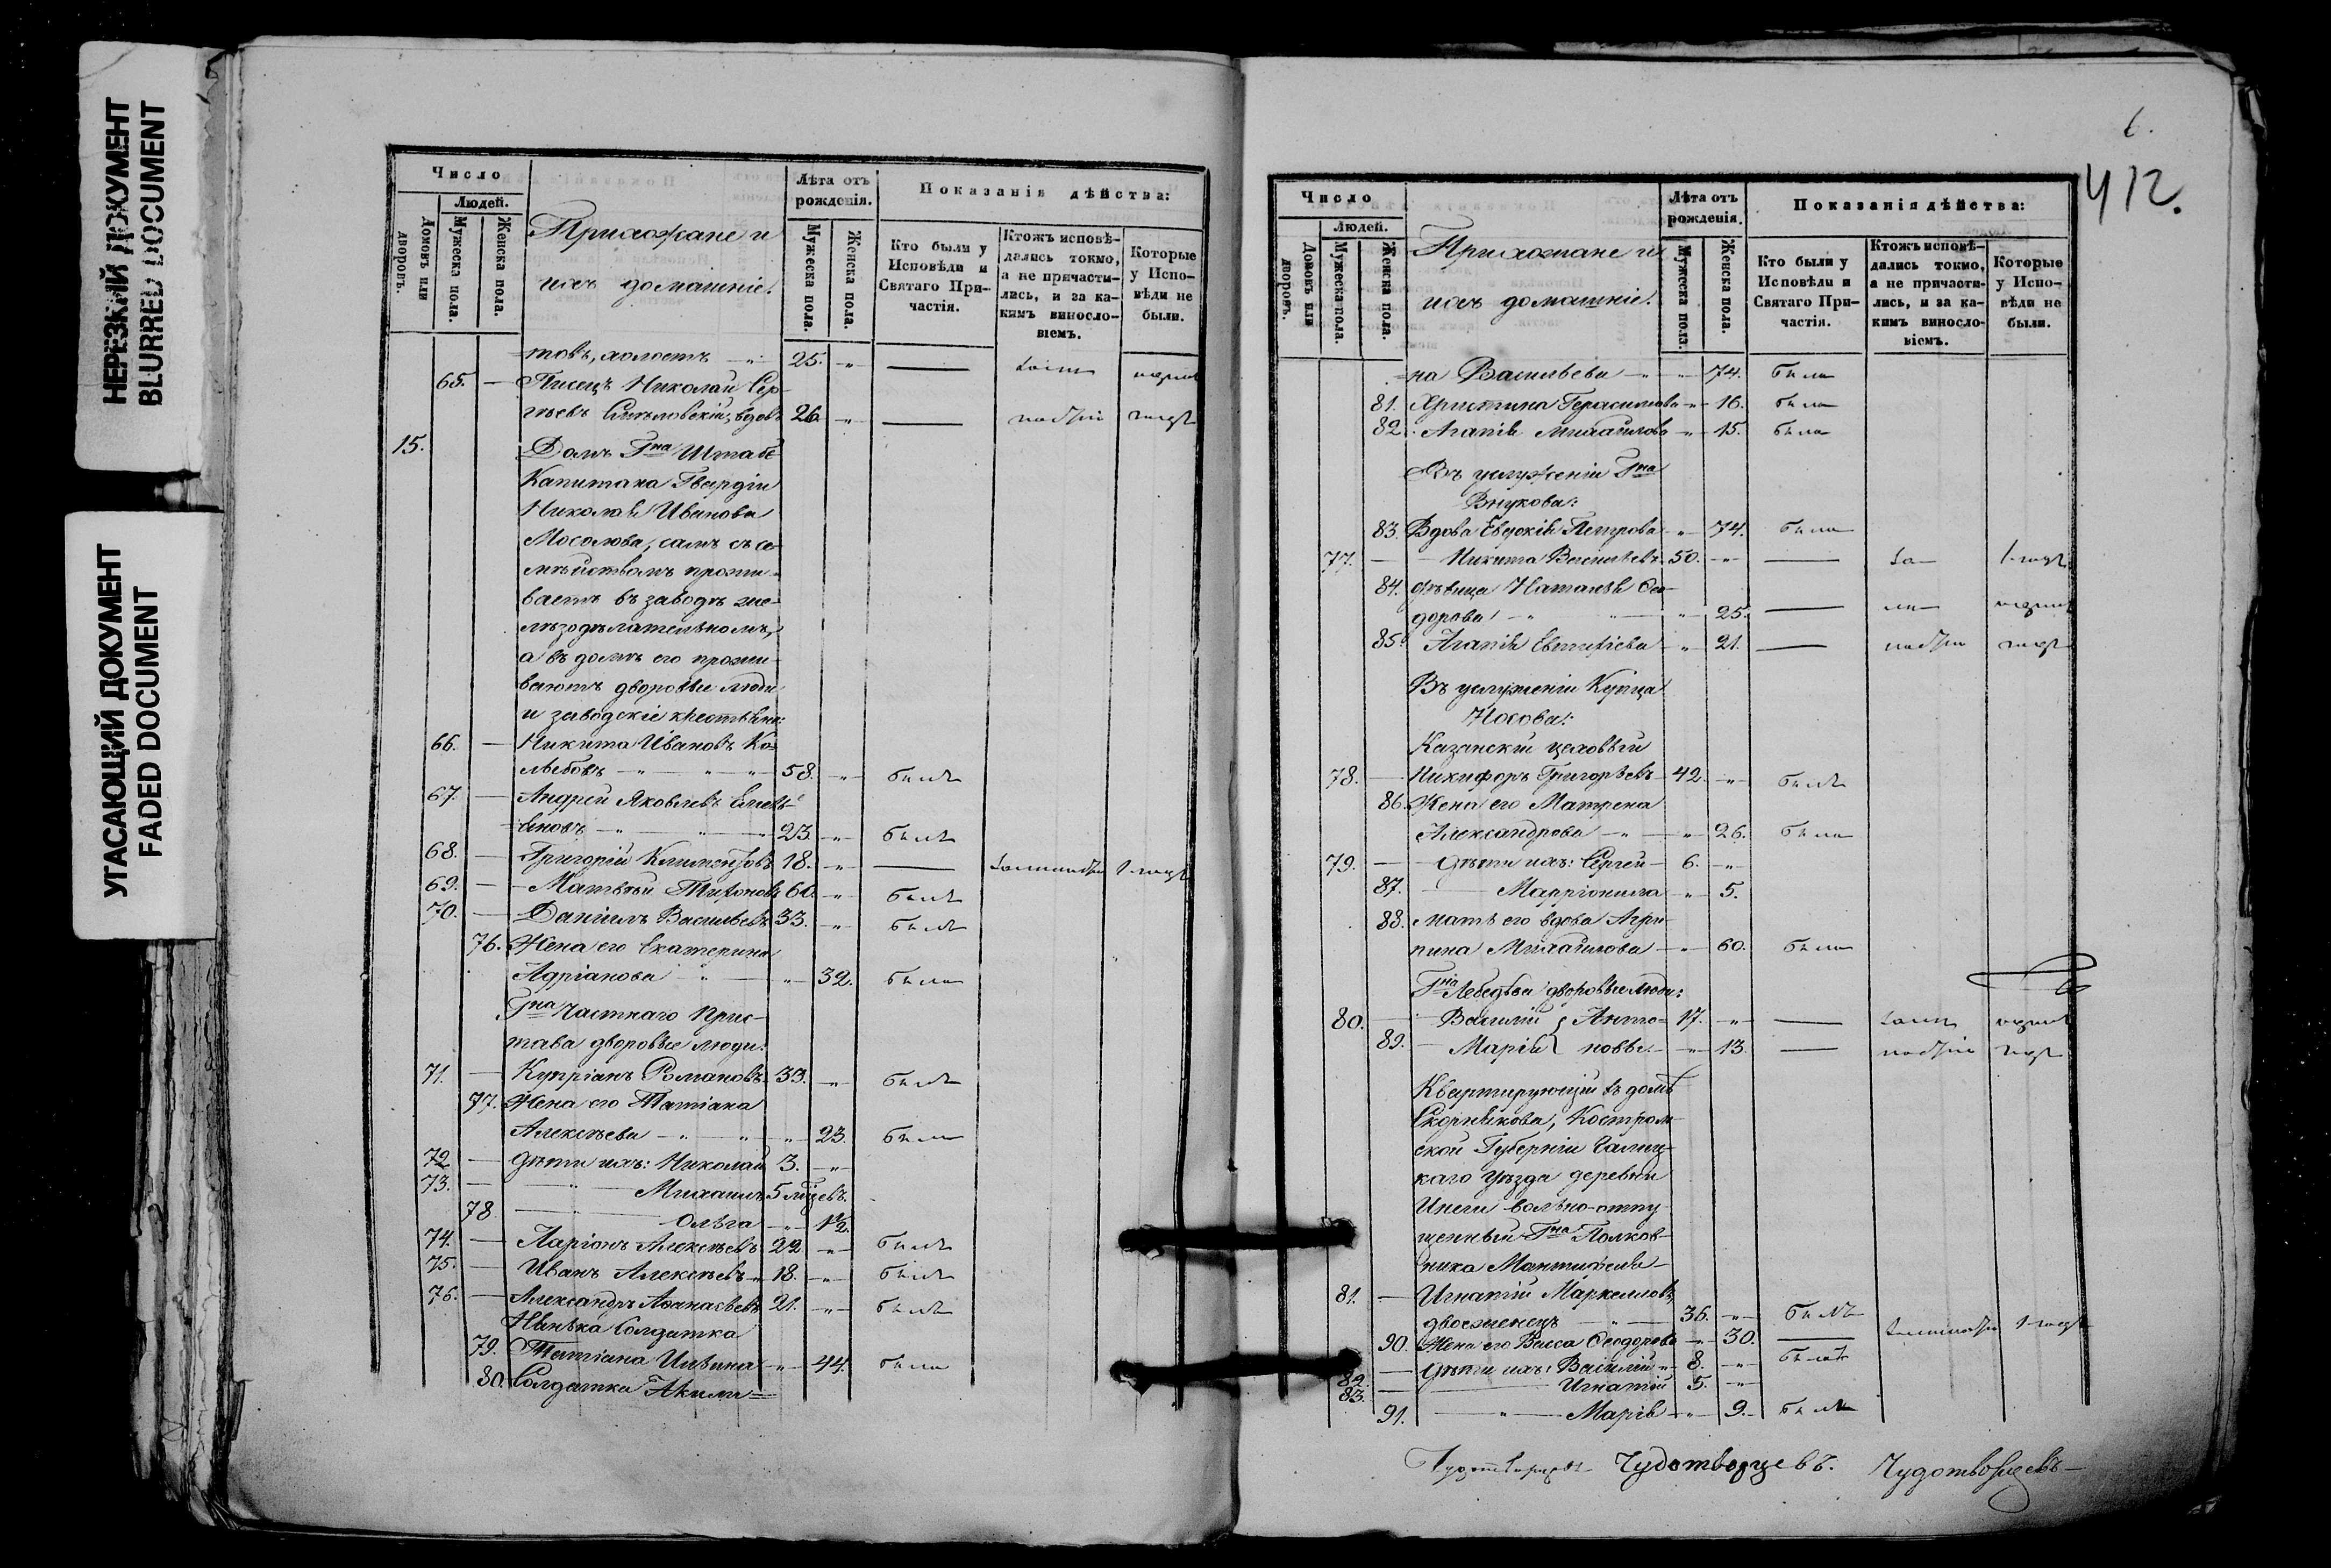 НЕРЕЗКИЙ ДОКУМЕНТ
BLURRED DOCUMENT
УГАСАЮЩИЙ ДОКУМЕНТ
FADED DOCUMENT
Число
Людей.
Домовъ или дворовъ.
Мужеска пола.
Женска пола.
Прихожане и
ихъ домашніе.
Лѣта отъ рожденія.
Мужеска пола.
Женска пола.
Показанія дѣйства:
Кто были у Исповѣди и Святаго Причастія.
Ктожъ исповѣдались токмо, а не причастились, и за какимъ винословіемъ.
Которые у Исповѣди не были.
товъ, холостъ 25.
65. Писецъ Николай Сер-
гѣевъ вдовъ 26.
15. Домъ Гна Штабс
Капитана Гвардіи
Николая Иванова
Мосолова, самъ съ се-
мѣйствомъ прожи-
ваетъ въ заводѣ же-
лѣзодѣлательномъ,
а въ домѣ его прожи-
ваютъ дворовые люди
и заводскіе крестьяне:
66. Никита Ивановъ Ко-
лыбовъ 58. былъ
67. Андрей Яковлевъ
23. былъ
68. Григорій Климентовъ 18.
69. Матвѣй Тихоновъ 60. былъ
70. Даніилъ Васильевъ 33. былъ
76. Жена его Екатерина
Адріанова 32. была
Гна Частнаго Прис-
тава дворовые люди:
71. Купріанъ Романовъ 33. былъ
77. Жена его Татіана
Алексѣева 23. была
72. Дѣти ихъ: Николай 3.
73. Михаилъ 5 мѣсяцевъ.
78. Ольга 1½.
74. Ларіонъ Алексѣевъ 22. былъ
75. Иванъ Алексѣевъ 18. былъ
76. Александръ Аѳанасьевъ 21. былъ
Нянька Солдатка
79. Татіана Ильина 44. была
80. Солдатка Акили=
6.
412.
Число
Людей.
Домовъ или дворовъ.
Мужеска пола.
Женска пола.
Прихожане и
ихъ домашніе.
Лѣта отъ рожденія.
Мужеска пола.
Женска пола.
Показанія дѣйства:
Кто были у Исповѣди и Святаго Причастія.
Ктожъ исповѣдались токмо, а не причастились, и за какимъ винословіемъ.
Которые у Исповѣди не были.
=на Васильева 74. была
81. Христина Герасимова 16. была
82. Агапія Михайлова 15. была
Въ услуженіи Гна
Внукова:
83. Вдова Евдокія Петрова 74. была
77. Никита Васильевъ 50.
84. дѣвица Наталья Ѳео-
дорова 25.
85. Агапія Евтифіева 21.
Въ услуженіи Купца
Носова:
Казанскій цеховый
78. Никифоръ Григорьевъ 42. былъ
86. Жена его Матрена
Александрова 26. была
79. дѣти ихъ: Сергей 6.
87. Марріонила 5.
88. мать его вдова Агри-
пина Михайлова 60. была
Гна Лебедева дворовые люди:
80. Василій } Анто- 17.
89. Марія } новы. 13.
Квартирующій въ домѣ
Скорнякова, Костром-
ской Губерніи Галиц-
каго уѣзда деревни
вольно-отпу-
щенный Гна Полков-
ника
81. Игнатій Маркелловъ,
двоеженецъ 36. былъ
90. Жена его Васса Ѳеодорова 30.
82. Дѣти ихъ: Василій 8. былъ
83. Игнатій 5.
91. Марія 9. была
Чудотворцевъ. Чудотворцевъ